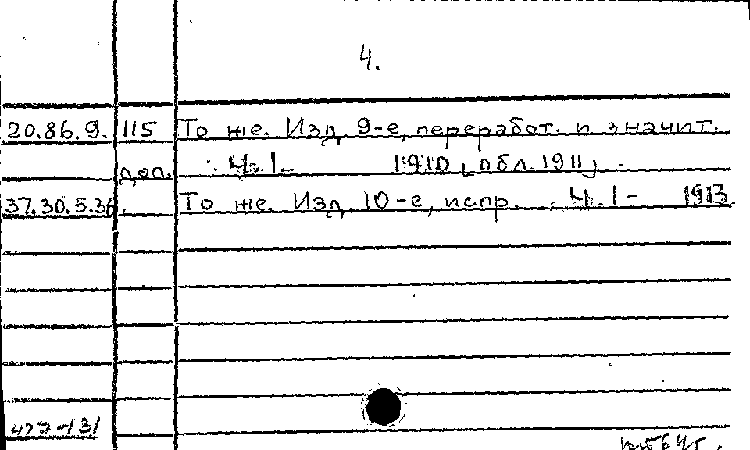 4.
20.86.9. 115 То же. Изд. 9-е, переработ. и значит.
доп. Ч.1. 1910 [обл. 1911]
37.30.5.36. То же. Изд. 10-е, испр. Ч.1- 1913
477-131